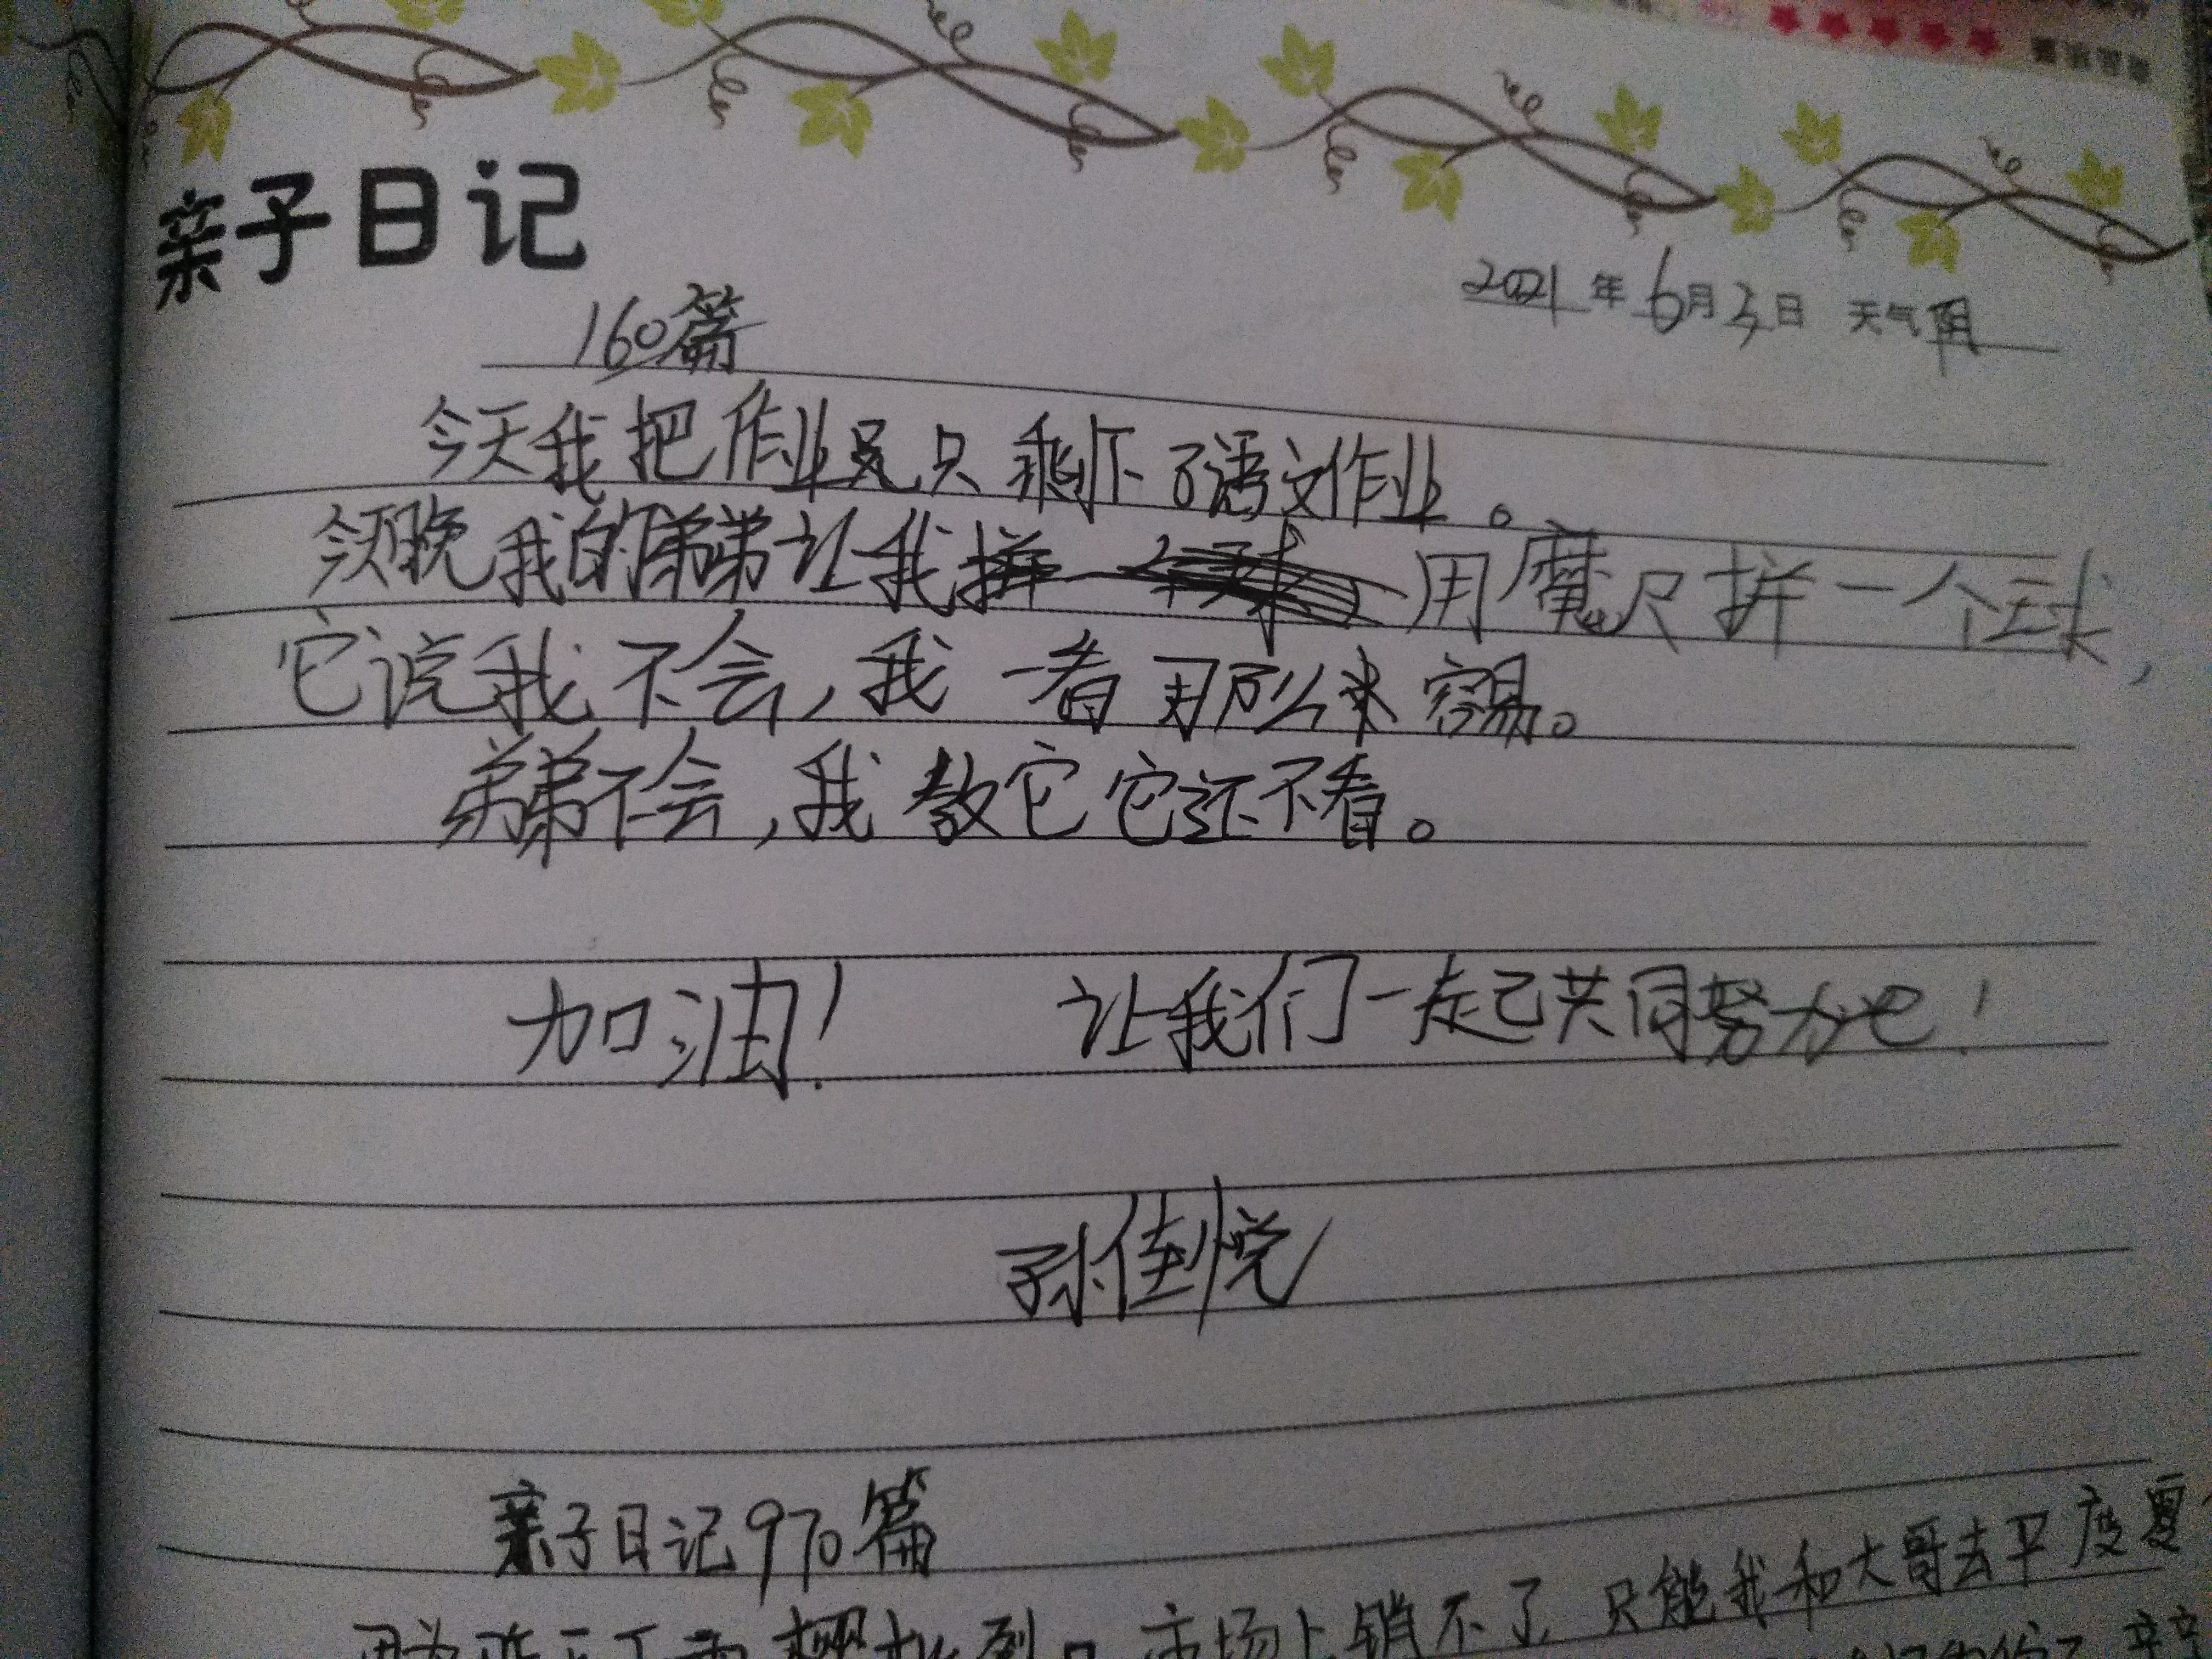 亲子日记
2021年6月3日 天气阴
160篇
今天我把作业只剩下了语文作业。
今天晚我的弟弟让我拼一个球用魔尺拼一个球,
它说我不会,我一看那么容易。
弟弟不会,我教它它还不看。
加油! 让我们一起共同努力吧!
孙佳悦
亲子日记970篇
市场上销不了 只能我和大哥去平度